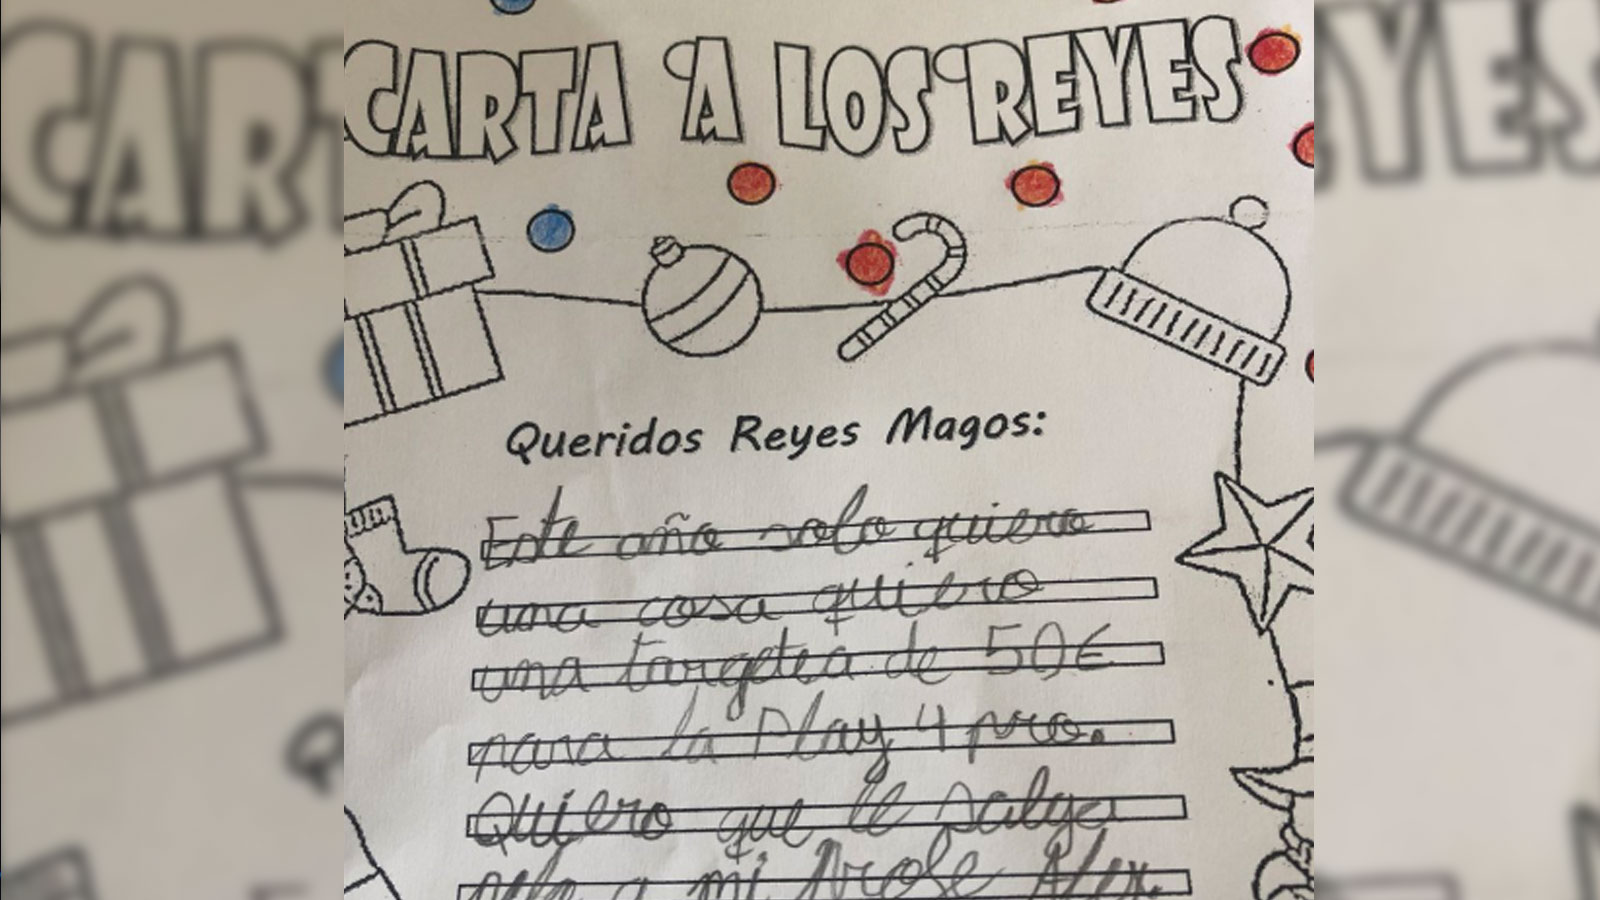 CARTA A LOS REYES
Queridos Reyes Magos:
Este año solo quiero
una cosa quiero
una targetea de 50€
para la Play 4 pro.
Quiero que le salga
pelo a mi Profe Alex.